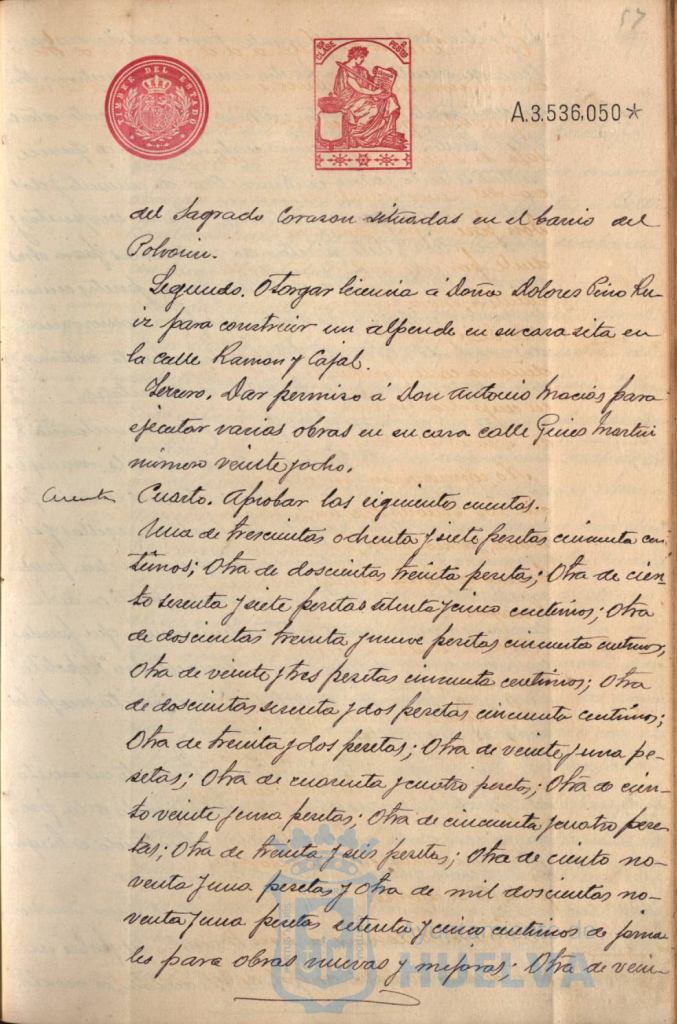 57
TIMBRE DEL ESTADO
CLASE
PESTAS
A.3.536,050*
del Sagrado Corazon situadas en el barrio del
Polvorin.
Segundo. Otorgar licencia á Doña Dolores Pino Ru-
iz para construir un alpende en su casa sita en
la calle Ramon y Cajal.
Tercero. Dar permiso á Don Antonio Macías para
ejecutar varias obras en su casa calle Gines Martin
número veinte y ocho.
Cuentas
Cuarto. Aprobar las siguientes cuentas.
Una de trescientas ochenta y siete pesetas cincuenta cen-
timos; Otra de doscientas treinta pesetas; Otra de cien-
to sesenta y siete pesetas setenta y cinco centimos; Otra
de doscientas treinta y nueve pesetas cincuenta centimos;
Otra de veinte y tres pesetas cincuenta centimos; Otra
de doscientas sesenta y dos pesetas cincuenta centimos;
Otra de treinta y dos pesetas; Otra de veinte y una pe-
setas; Otra de cuarenta y cuatro pesetas; Otra de cien-
to veinte y una pesetas; Otra de cincuenta y cuatro pese-
tas; Otra de treinta y seis pesetas; Otra de ciento no-
venta y una pesetas y Otra de mil doscientas no-
venta y una pesetas setenta y cinco centimos de jorna-
les para obras nuevas y mejoras; Otra de vein-
HUELVA